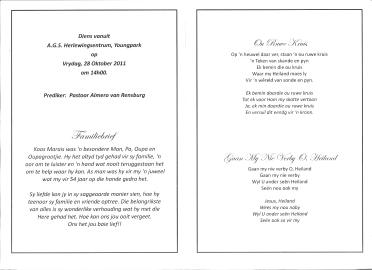 Diens vanuit
A.G.S. Herlewingsentrum, Youngpark
op
Vrydag, 28 Oktober 2011
om 14h00.
Prediker: Pastoor Almero van Rensburg
Familiebrief
Koos Marais was 'n besondere Man, Pa, Oupa en
Oupagrootjie. Hy het altyd tyd gehad vir sy familie, 'n
oor om te luister en 'n hand wat nooit teruggestaan het
om te help waar hy kan. As man was hy vir my 'n juweel
wat my vir 54 jaar op die hande gedra het.
Sy liefde kan jy in sy saggeaarde manier sien, hoe hy
teenoor sy familie en vriende optree. Die belangrikste
van alles is sy wonderlike verhouding wat hy met die
Here gehad het. Hoe kan ons jou ooit vergeet.
Ons het jou baie lief!!
Ou Ruwe Kruis
Op 'n heuwel daar ver, staan 'n ou ruwe kruis
'n Teken van skande en pyn
Ek bemin die ou kruis
Waar my Heiland moes ly
Vir 'n wêreld van sonde en pyn.
Ek bemin daardie ou ruwe kruis
Tot ek voor Hom my skatte vertoon
Ja, ek min daardie ou ruwe kruis
En verruil dit eendag vir 'n kroon.
Gaan My Nie Verby O, Heiland
Gaan my nie verby O, Heiland
Gaan my nie verby
Wyl U ander seën Heiland
Seën nou ook my
Jesus, Heiland
Wees my nou naby
Wyl U ander seën Heiland
Seën ook so vir my